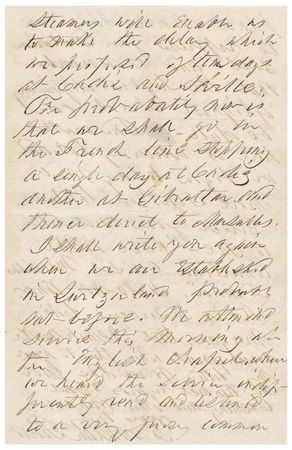 Steamers will enable us
to make the delay which
we proposed of ten days
at Cadiz and Seville.
The probability now is
that we shall go in
the French line stopping
a single day at Cadiz
another at Gibraltar and
thence direct to Marseilles.
I shall write you again
when we are established
in Switzerland probably
not before. We attended
service this morning at
the English chapel where
we heard the service indif-
ferently read and listened
to a very common